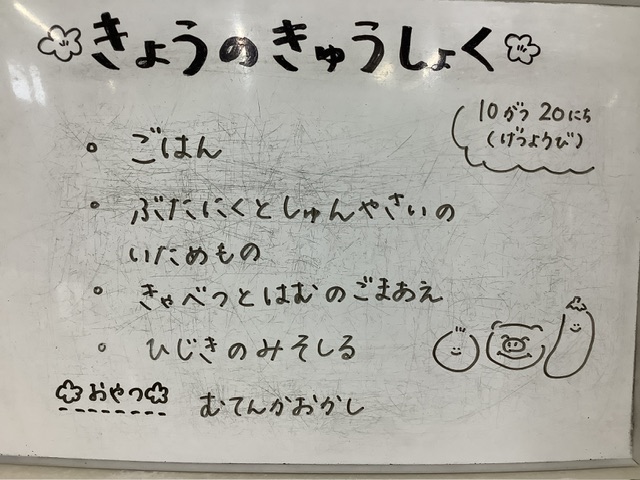 きょうのきゅうしょく
10がつ20にち
(げつようび)
・ごはん
・ぶたにくとしゅんやさいの
いためもの
・きゃべつとはむのごまあえ
・ひじきのみそしる
おやつ むてんかおかし